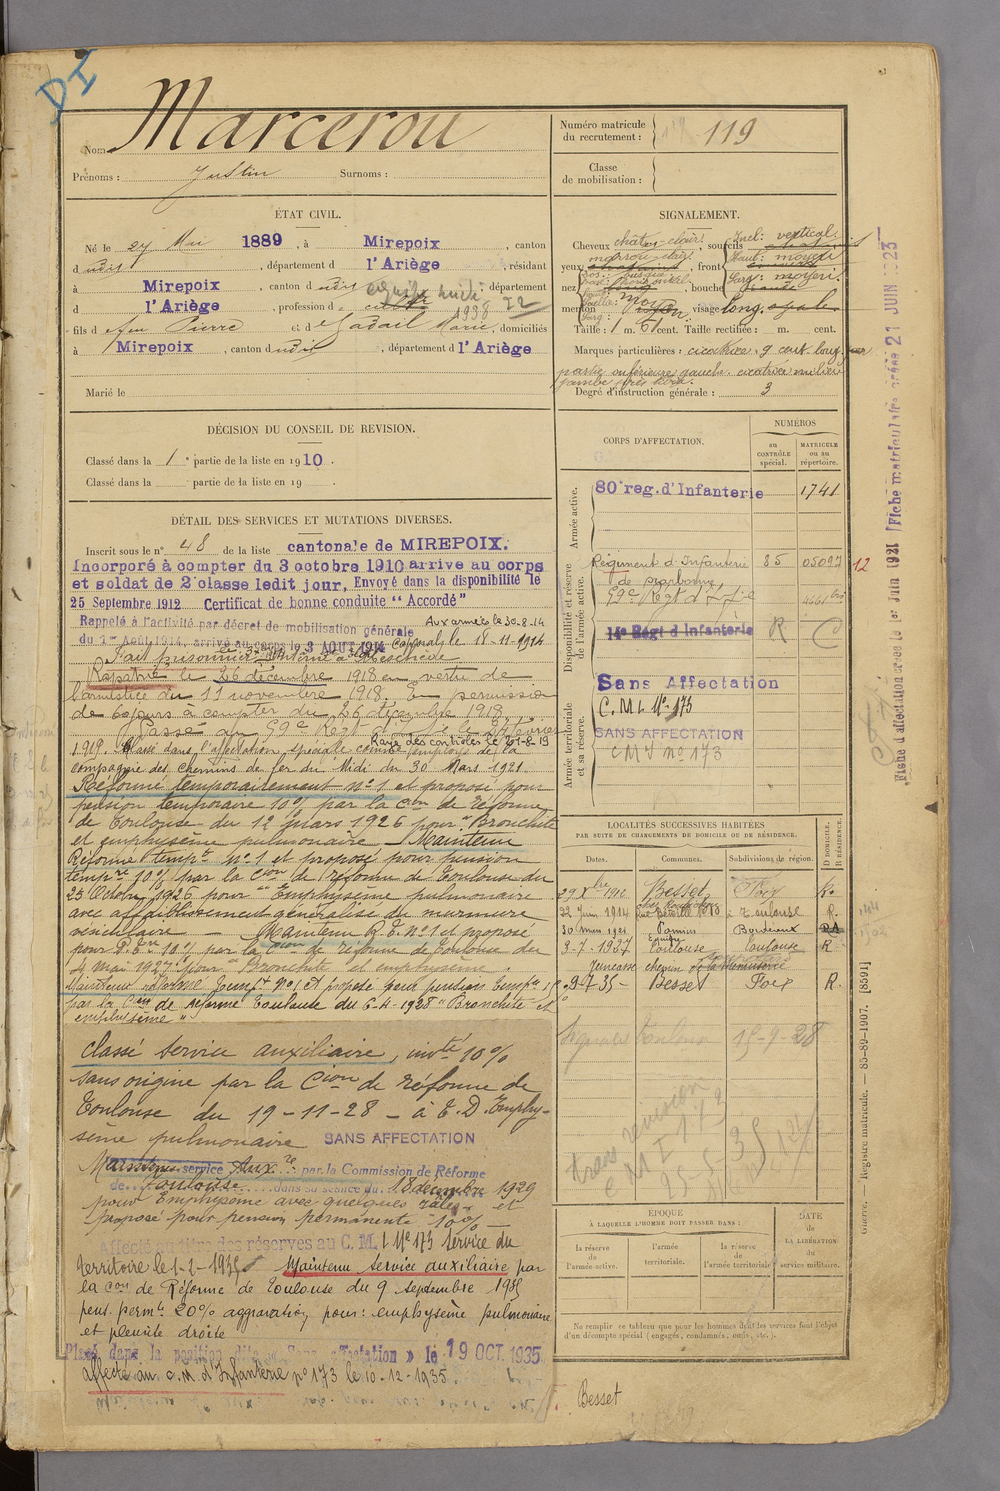 DI
Nom Marcerou
Prénoms : Justin Surnoms :
Numéro matricule du recrutement : 119
Classe de mobilisation :
ÉTAT CIVIL.
Né le 27 Mai 1889, à Mirepoix, canton
d udit, département d l'Ariège, résidant
à Mirepoix, canton d udit, département
d l'Ariège, profession d
1938 72
fils d feu Pierre et d Marie, domiciliés
à Mirepoix, canton d udit, département d l'Ariège
Marié le
SIGNALEMENT.
Cheveux châtain-clair, sourcils
Incl: vertical
yeux marron clair, front
Haut: moyen
Larg: moyen
nez, bouche
menton, visage long.
Taille : 1 m. 61 cent. Taille rectifiée : m. cent.
Marques particulières : cicatrice 9 cent. long. sur
partie inférieure gauche. cicatrice milieu
jambe
Degré d'instruction générale : 3
DÉCISION DU CONSEIL DE REVISION.
Classé dans la 1e partie de la liste en 1910.
Classé dans la partie de la liste en 19 .
DÉTAIL DES SERVICES ET MUTATIONS DIVERSES.
Inscrit sous le n° 48 de la liste cantonale de MIREPOIX.
Incorporé à compter du 3 octobre 1910 arrivé au corps
et soldat de 2e classe ledit jour, Envoyé dans la disponibilité le
25 Septembre 1912 Certificat de bonne conduite "Accordé"
Rappelé à l'activité par décret de mobilisation générale Aux armées le 30-8-14
du 1er Août 1914, arrivé au corps le 3 AOUT 1914 Caporal le 18-11-1914
Fait prisonnier interné à Meschede
Rapatrié le 26 décembre 1918 en vertu de
l'armistice du 11 novembre 1918. En permission
de 60 jours à compter du 26 décembre 1918
Passé au 99e Régt d'Ie le 24 février
1919. Classé dans l'affectation spéciale comme employé de la
Rayé des contrôles le 20-8-19
compagnie des chemins de fer du Midi du 30 Mars 1921
Réformé temporairement n° 1 et proposé pour
pension temporaire 10% par la Cion de réforme
de Toulouse du 12 mars 1926 pour "Bronchite
et emphysème pulmonaire - Maintenu
Réformé tempre N° 1 et proposé pour pension
tempre 10% par la Cion de réforme de Toulouse du
25 Octobre 1926 pour "Emphysème pulmonaire
avec affaiblissement généralisé du murmure
vésiculaire - Maintenu R.T. n° 1 et proposé
pour P. Tre 10% par la Cion de réforme de Toulouse du
4 mai 1927 pour "Bronchite et emphysème.
Maintenu réformé tempt N° 1 et proposé pour pension tempre 10%
par la Cion de réforme Toulouse du 6-4-1928 "Bronchite et
emphysème"
Classé service auxiliaire, invté 10%
sans origine par la Cion de réforme de
Toulouse du 19-11-28 - à E.D. Emphy-
sème pulmonaire SANS AFFECTATION
Maintenu service Auxre par la Commission de Réforme
de Toulouse dans sa séance du 18 décembre 1929
pour Emphysème avec quelques râles et
proposé pour pension permanente 10% -
Affecté au titre des réserves au C. M. I N° 173 Service du
territoire le 1-2-1935 Maintenu service auxiliaire par
la Con de Réforme de Toulouse du 9 septembre 1935
pens. permte 20% aggravation pour : emphysème pulmonaire
et pleurite droite
Placé dans la position dite « Sans affectation » le 19 OCT. 1935
affecté au C.M. d'Infanterie n° 173 le 10-12-1935.
CORPS D'AFFECTATION.
NUMÉROS
au CONTRÔLE spécial.
MATRICULE ou au répertoire.
Armée active.
80e reg. d'Infanterie 1741
Disponibilité et réserve de l'armée active.
Régiment d'Infanterie 85 05097 12
de Narbonne,
99e Régt d'Ie
14e Régt d'Infanterie R
Armée territoriale et sa réserve.
Sans Affectation
C.M.I. N° 173
SANS AFFECTATION
CMI n° 173
LOCALITÉS SUCCESSIVES HABITÉES
PAR SUITE DE CHANGEMENTS DE DOMICILE OU DE RÉSIDENCE.
Dates. Communes. Subdivisions de région. D DOMICILE. R RÉSIDENCE.
29 Xbre 1910 Besset Foix R.
22 Juin 1914 Toulouse R.
30 mars 1921 Pamiers Bordeaux
3-7-1927 Toulouse Toulouse R
9-7-35- Besset Foix R.
Toulouse 15-9-28
CMI 173
ÉPOQUE
À LAQUELLE L'HOMME DOIT PASSER DANS :
la réserve de l'armée active.
l'armée territoriale.
la réserve de l'armée territoriale
DATE de LA LIBÉRATION du service militaire.
Ne remplir ce tableau que pour les hommes dont les services font l'objet
d'un décompte spécial (engagés, condamnés, omis, etc.).
Besset
Fiche matriculaire créée 21 JUIN 1923
Fiche d'affectation créée le 1er Juin 1921
Guerre. — Registre matricule. — 85-89-1907. [8591]